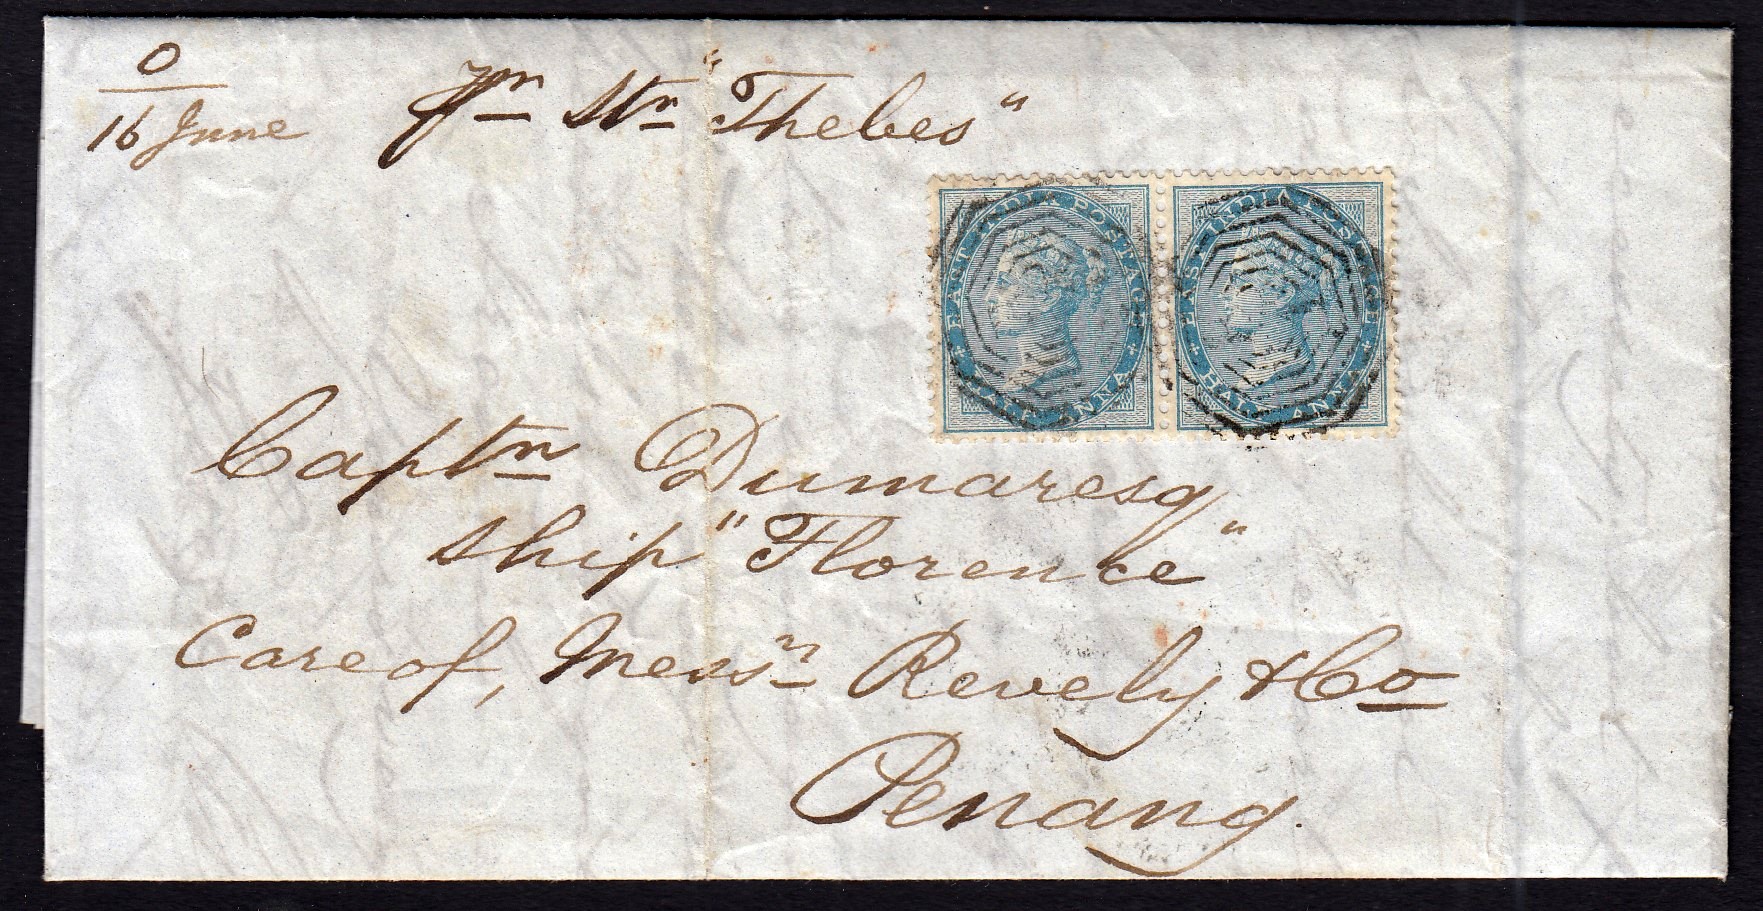 O
16 June
Pr Str "Thebes"
EAST INDIA POSTAGE
HALF ANNA
EAST INDIA POSTAGE
HALF ANNA
Captn Dumaresq
Ship "Florence"
Care of, Messrs Revely & Co
Penang.